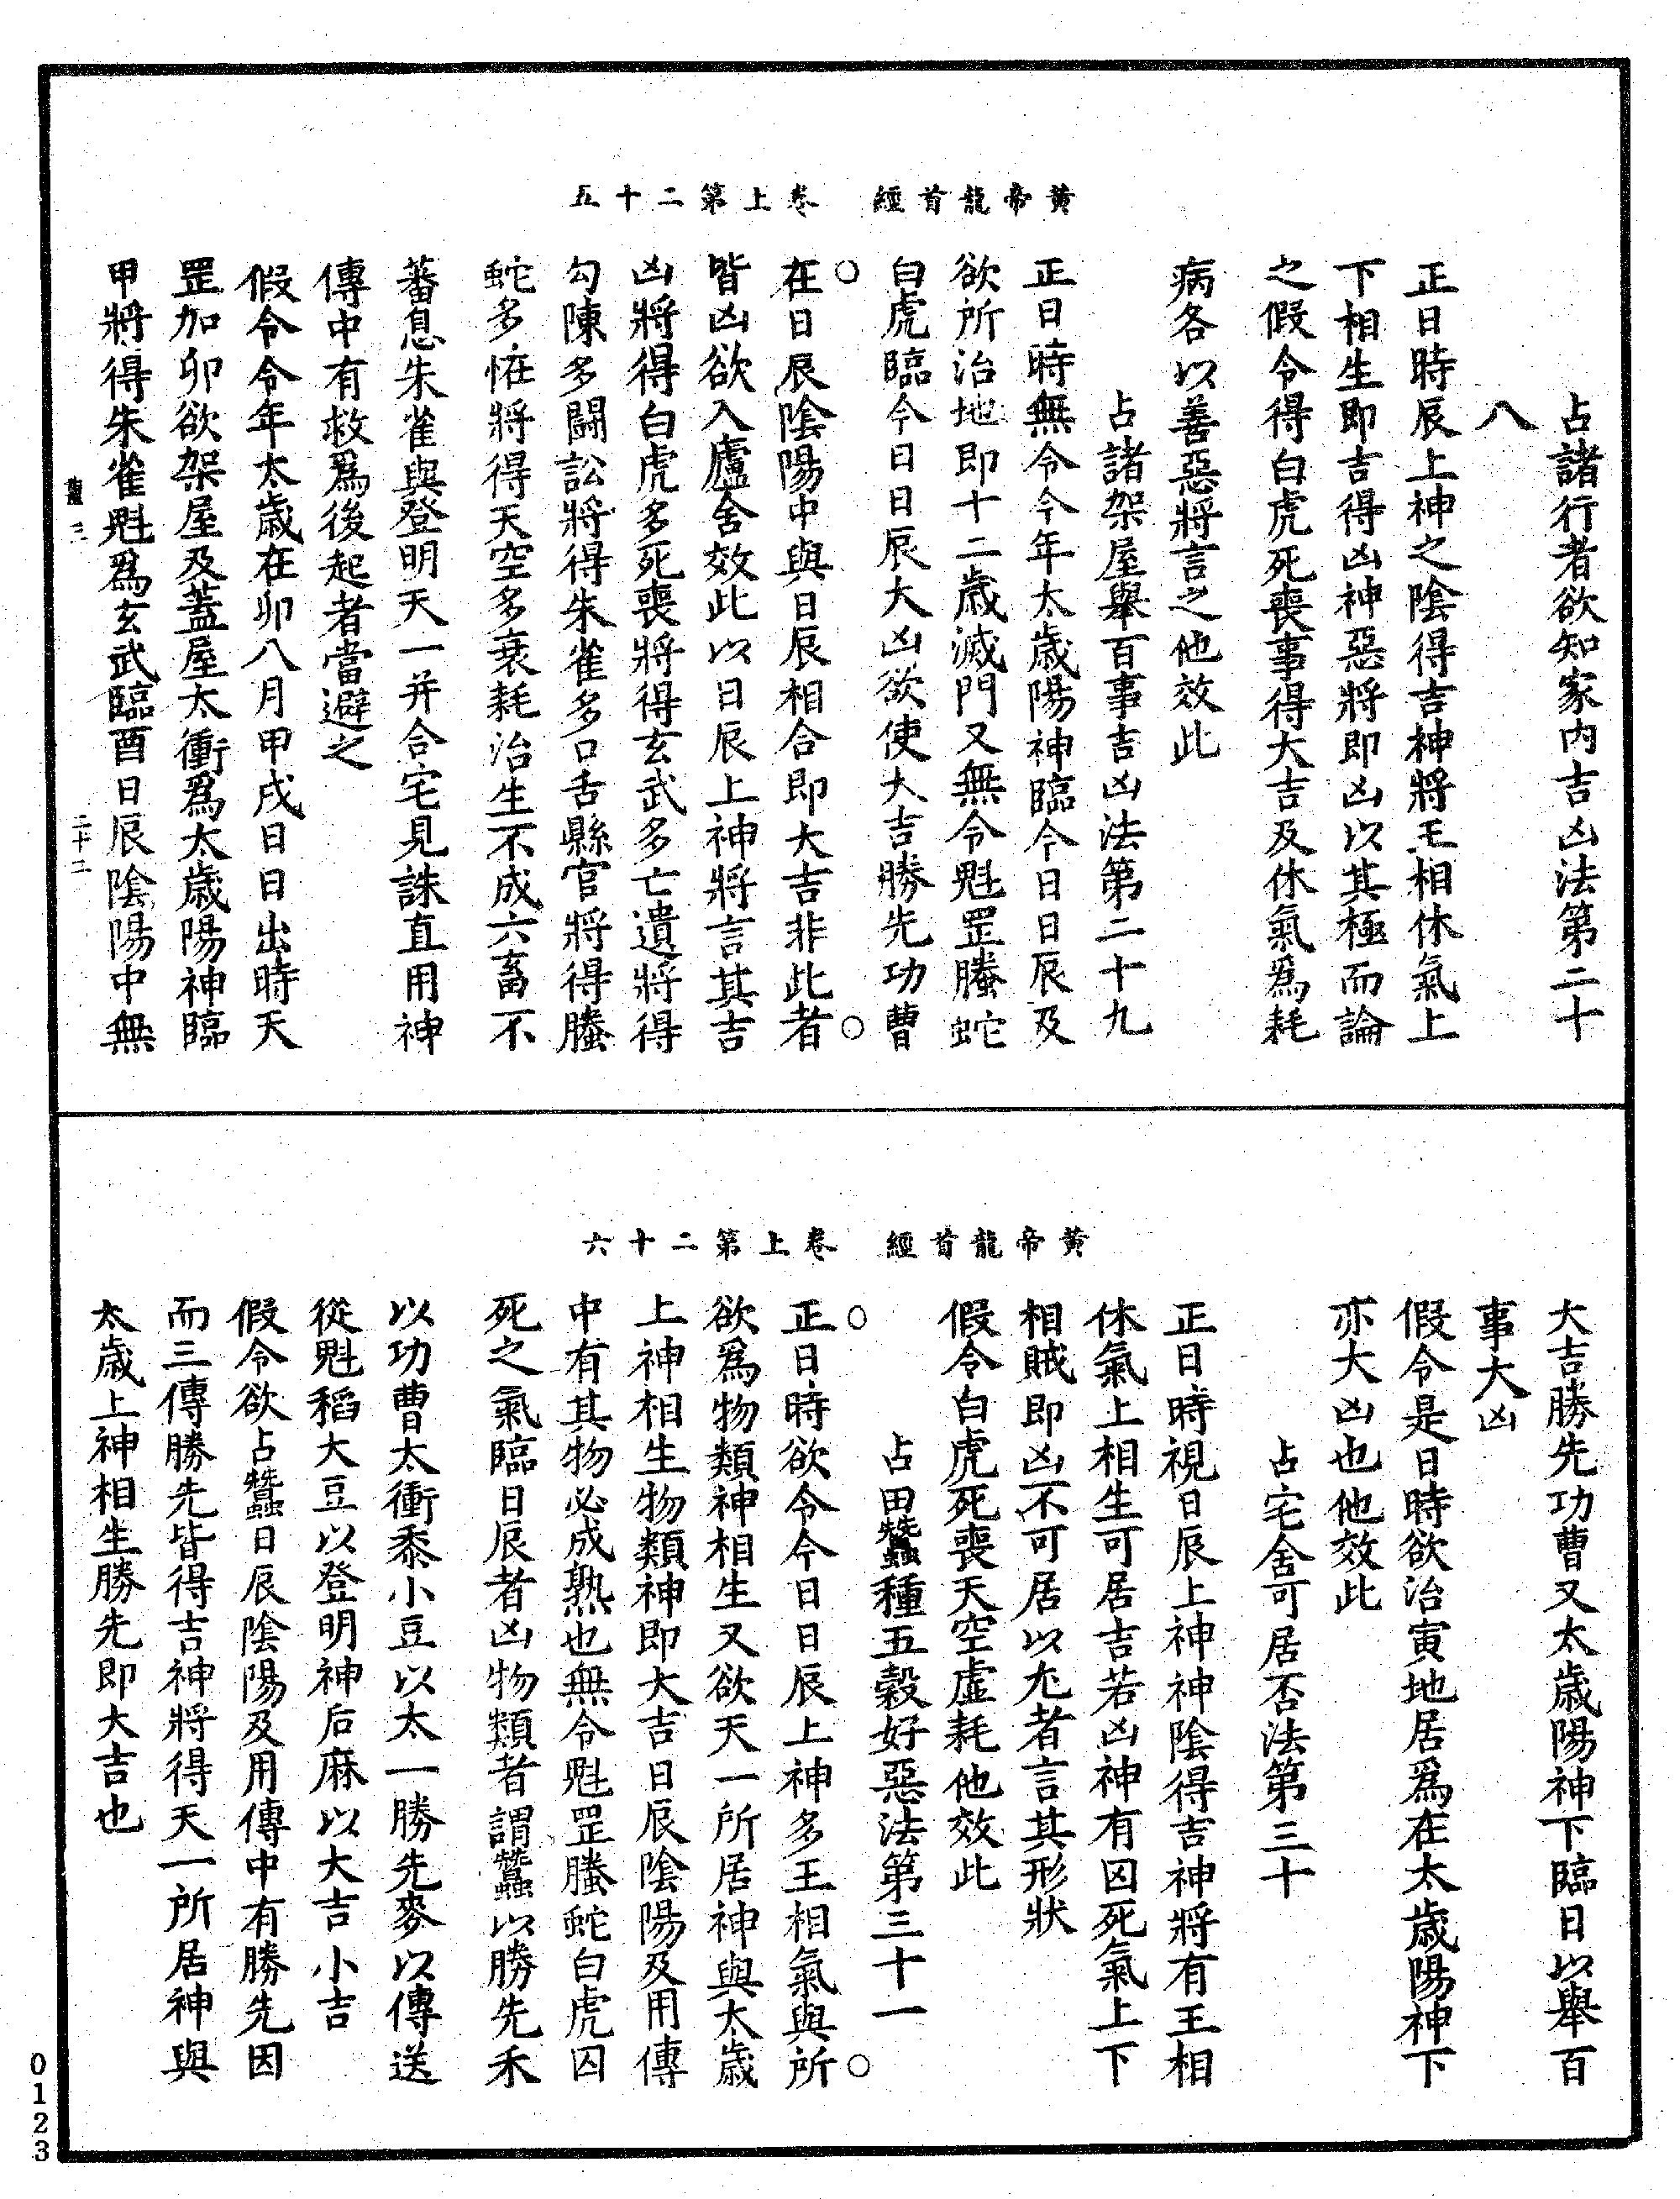 黃帝龍首經　卷上第二十五
占諸行者欲知家内吉凶法第二十
八
正日時辰上神之陰得吉神將王相休氣上
下相生即吉得凶神惡將即凶以其極而論
之假令得白虎死喪事得大吉及休氣爲耗
病各以善惡將言之他效此
占諸架屋舉百事吉凶法第二十九
正日時無令今年太歲陽神臨今日日辰及
欲所治地即十二歲滅門又無令魁罡螣蛇
白虎臨今日日辰大凶欲使大吉勝先功曹
在日辰陰陽中與日辰相合即大吉非此者
皆凶欲入廬舍效此以日辰上神將言其吉
凶將得白虎多死喪將得玄武多亡遺將得
勾陳多鬪訟將得朱雀多口舌縣官將得螣
蛇多恠將得天空多衰耗治生不成六畜不
蕃息朱雀與登明天一并合宅見誅直用神
傳中有救爲後起者當避之
假令今年太歲在卯八月甲戌日日出時天
罡加卯欲架屋及蓋屋太衝爲太歲陽神臨
甲將得朱雀魁爲玄武臨酉日辰陰陽中無
龍三　二十二
黃帝龍首經　卷上第二十六
大吉勝先功曹又太歲陽神下臨日以舉百
事大凶
假令是日時欲治寅地居爲在太歲陽神下
亦大凶也他效此
占宅舍可居否法第三十
正日時視日辰上神神陰得吉神將有王相
休氣上相生可居吉若凶神有囚死氣上下
相賊即凶不可居以尢者言其形狀
假令白虎死喪天空虛耗他效此
占田蠶種五穀好惡法第三十一
正日時欲令今日日辰上神多王相氣與所
欲爲物類神相生又欲天一所居神與大歲
上神相生物類神即大吉日辰陰陽及用傳
中有其物必成熟也無令魁罡螣蛇白虎囚
死之氣臨日辰者凶物類者謂蠶以勝先禾
以功曹太衝黍小豆以太一勝先麥以傳送
從魁稻大豆以登明神后麻以大吉小吉
假令欲占蠶日辰陰陽及用傳中有勝先因
而三傳勝先皆得吉神將得天一所居神與
太歲上神相生勝先即大吉也
0123